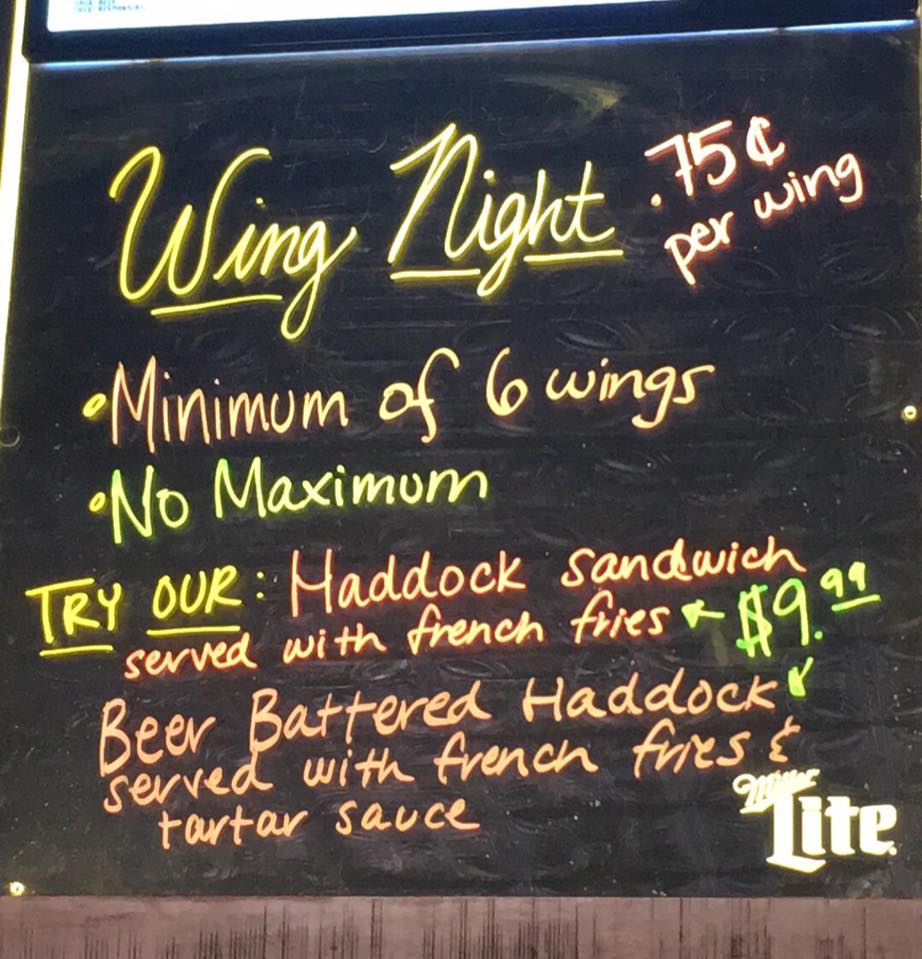 Wing Night .75¢
per wing
•Minimum of 6 wings
•No Maximum
TRY OUR: Haddock sandwich
served with french fries ← $9.99
Beer Battered Haddock ↙
served with french fries &
tartar sauce
Miller
Lite